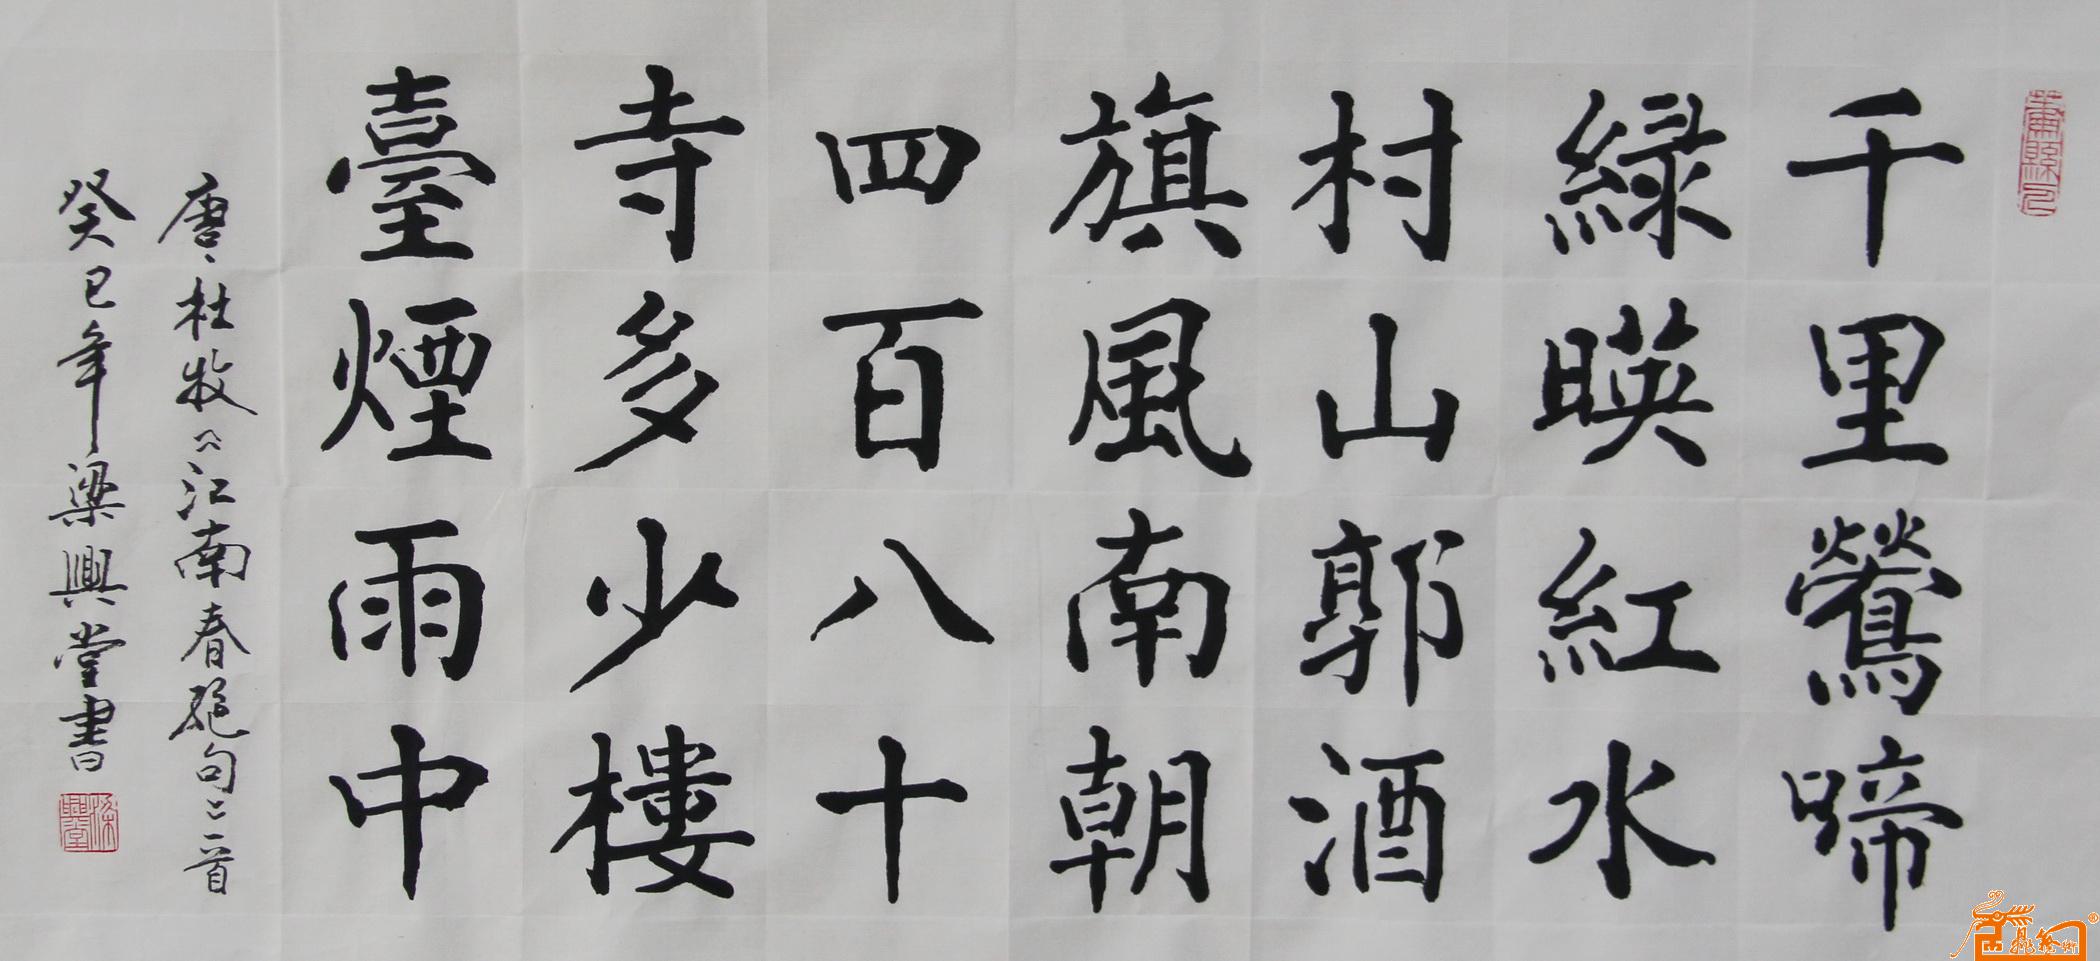 千里鶯啼
緑暎紅水
村山郭酒
旗風南朝
四百八十
寺多少樓
臺煙雨中
唐、杜牧《江南春絕句》一首
癸巳年梁興堂書